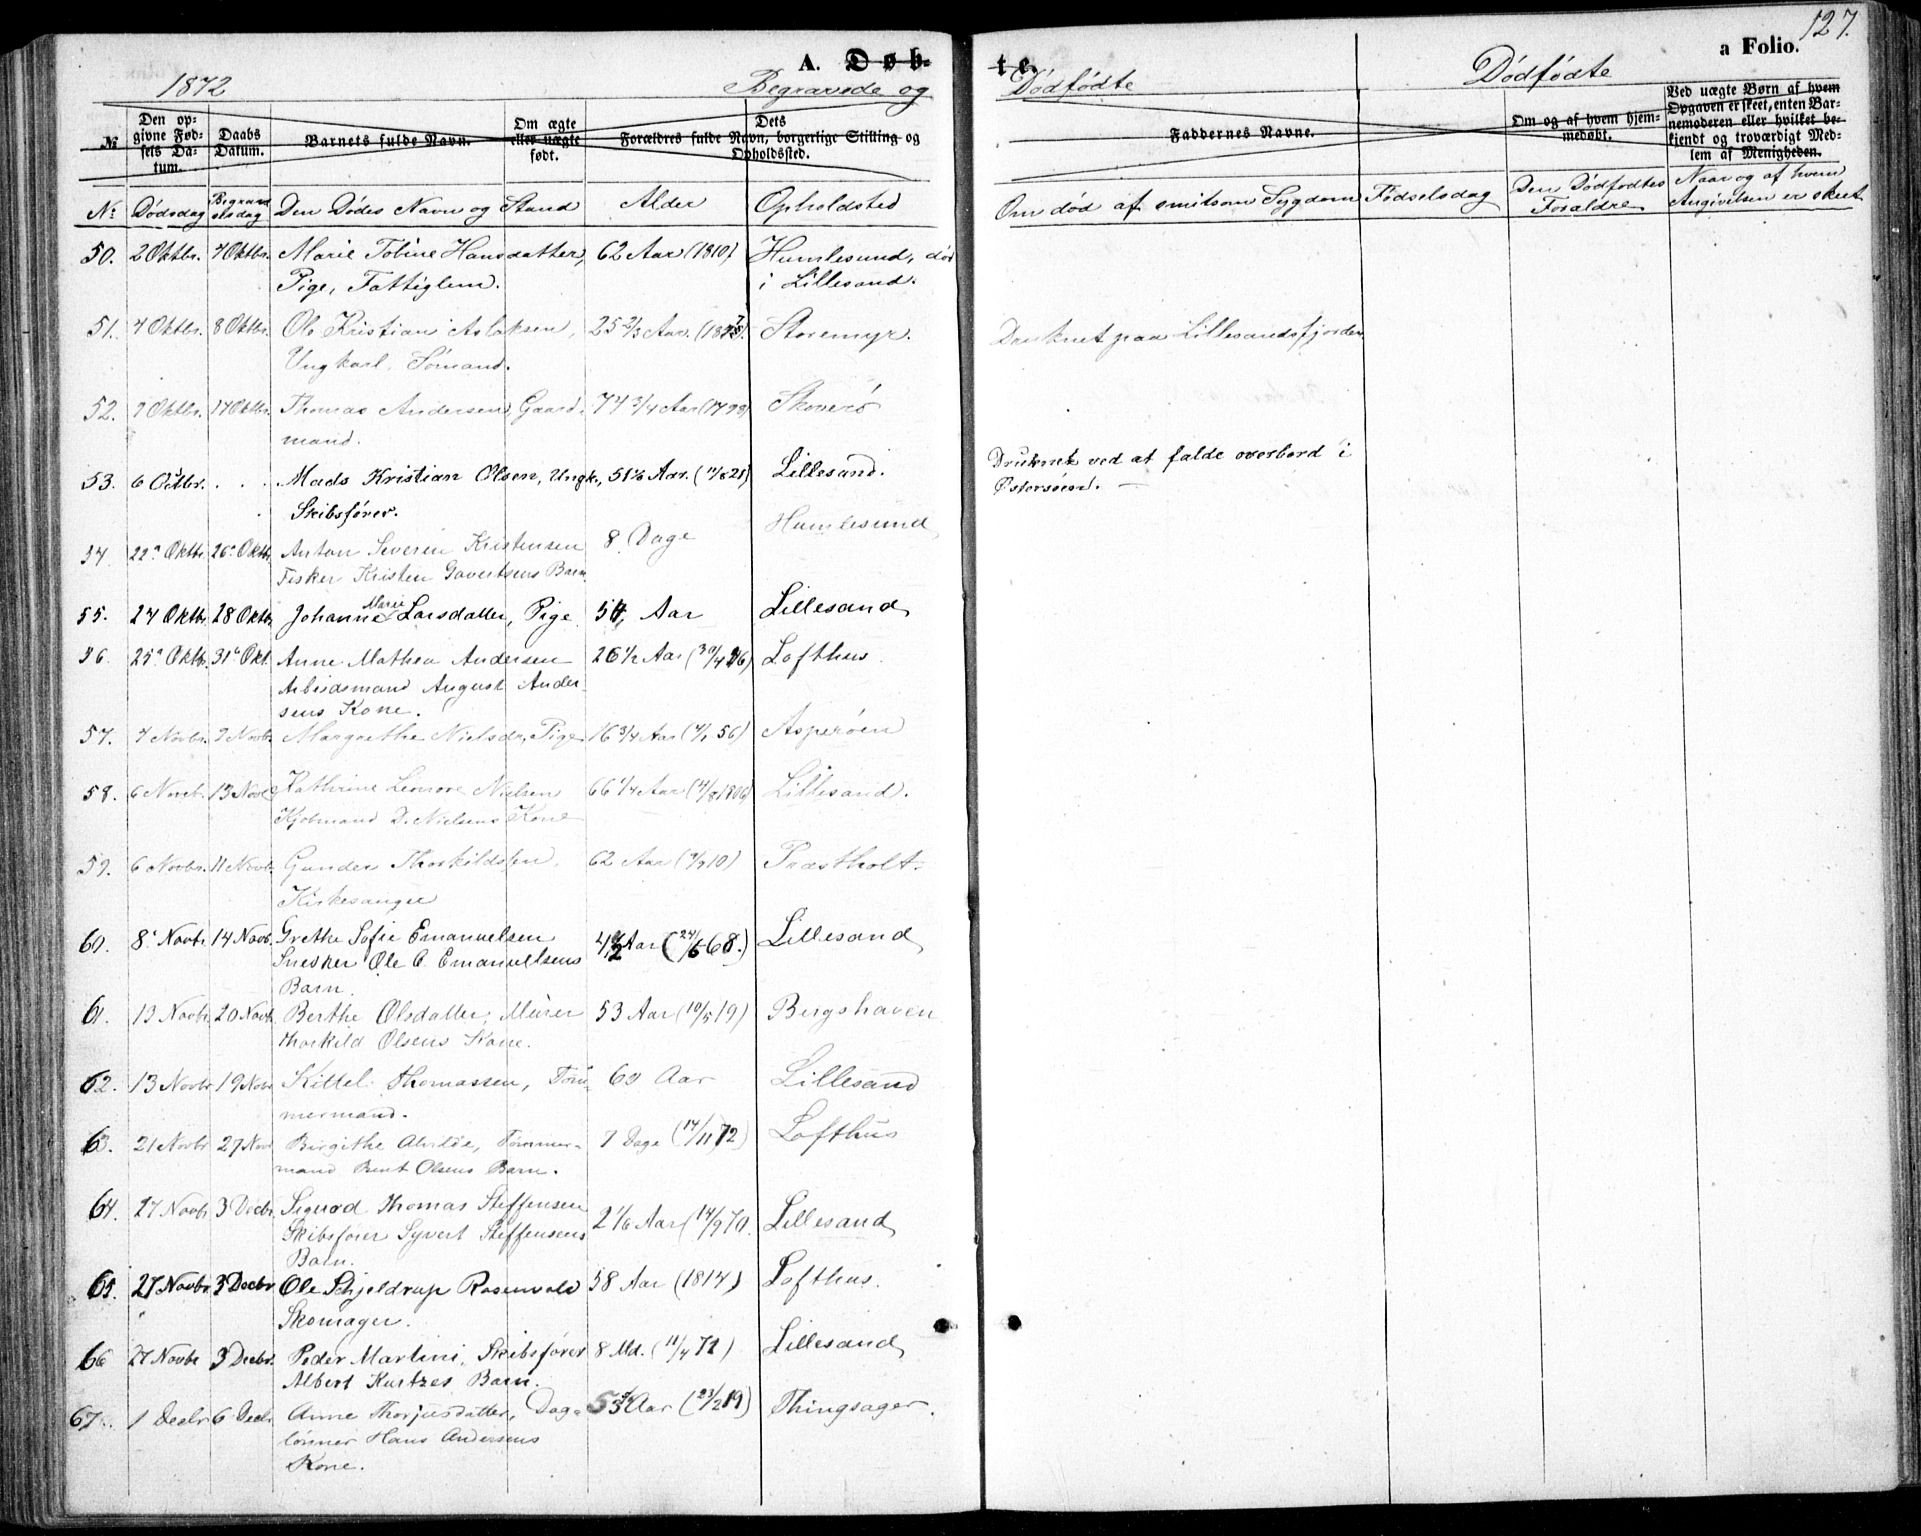 127.
A. Døb-
te.
a Folio.
1872
Begravede og
Dødfødte
Dødfødte
№
Den op-
givne Fød-
sels Da-
tum.
Daabs
Datum.
Barnets fulde Navn.
Om ægte
eller uægte
født.
Dets
Forældres fulde Navn, borgerlige Stilling og
Opholdssted.
Faddernes Navne.
Om og af hvem hjem-
medøbt.
Ved uægte Børn af hvem
Opgaven er skeet, enten Bar-
nemoderen eller hvilket be-
kjendt og troværdigt Med-
lem af Menigheden.
№ Dødsdag Begravelsesdag Den Dødes Navn og Stand Alder Opholdsted
Om død af smitsom Sygdom Fødselsdag Den Dødfødtes Foraldre Naar og af hvem Angivelsen er skeet
50. 2 Oktbr. 7 Oktbr. Marie Tobine Hansdatter, 62 Aar (1810) Humlesund, død
Pige, Fattiglem. i Lillesand.
51. 4 Oktbr. 8 Oktbr. Ole Kristian Aslaksen, 25 2/3 Aar. Storemyr. Druknet paa Lillesandsfjorden
Ungkarl. Sømand.
52. 9 Oktbr. 17 Oktbr. Thomas Andersen, Gaard- 74 3/4 Aar (1798) Skoverö
mand.
53. 6 Octbr. . . Mads Kristian Olsen, Ungk., 51 1/6 Aar. (11/8 21) Lillesand. Druknet ved at falde overbord i
Skibsfører. Østersøen. —
54 22. Oktbr. 26. Oktbr. Anton Severin Kristensen 8 Dage Humlesund
Fisker Kristen Govertsens Barn
55. 24 Oktbr. 28 Oktbr. Johanne Marie Larsdatter, Pige 54, Aar Lillesand
56 25. Oktbr. 31. Okt. Anne Mathea Andersen 26 1/2 Aar (30/4 46) Lofthus
Arbeidsmand August Ander-
sens Kone.
57. 4 Novbr. 9 Novbr. Margrethe Nielsdr, Pige 16 3/4 Aar (4/1 56) Asperöen
58. 6 Novb. 13 Novb. Kathrine Leonore Nielsen 66 1/4 Aar (4/8 1806) Lillesand.
Kjøbmand D. Nielsens Kone
59. 6 Novbr. 11 Novb. Gunder Thorkildsen, 62 Aar Præstholt.
Kirkesanger
60. 8. Novbr. 14 Novb. Grethe Sofie Emanuelsen 4 1/2 Aar (24/5 68.) Lillesand
Snedker Ole C. Emanuelsens
Barn.
61. 13 Novbr. 20 Novb. Berthe Olsdatter, Murer 53 Aar (10/5 19) Bergshaven
Thorkild Olsens Kone.
62. 13 Novbr 19 Nobr Kittel Thomassen, Töm- 60 Aar Lillesand
mermand.
63. 21 Novbr 27 Nov Birgithe , Tömmer- 7 Dage (14/11 72) Lofthus
mand Bent Olsens Barn.
64. 27 Novbr 3 Decbr. Sigurd Thomas Steffensen 2 1/6 Aar (14/9 70. Lillesand
Skibsfører Syvert Steffensens
Barn.
65. 27 Novbr 3 Decbr Ole Schjeldrup Rosenvold 58 Aar (1814) Lofthus.
Skomager.
66 27 Novbr 3 Decbr. Peder Martini, Skibsfører 8 Md. (11/4 72) Lillesand
Albert Kurtzes Barn.
67. 1 Decbr 6 Decbr Anne Thorjusdatter, Dag- 53 3/4 Aar (23/2 19) Thingsager.
lønner Hans Andersens
Kone.